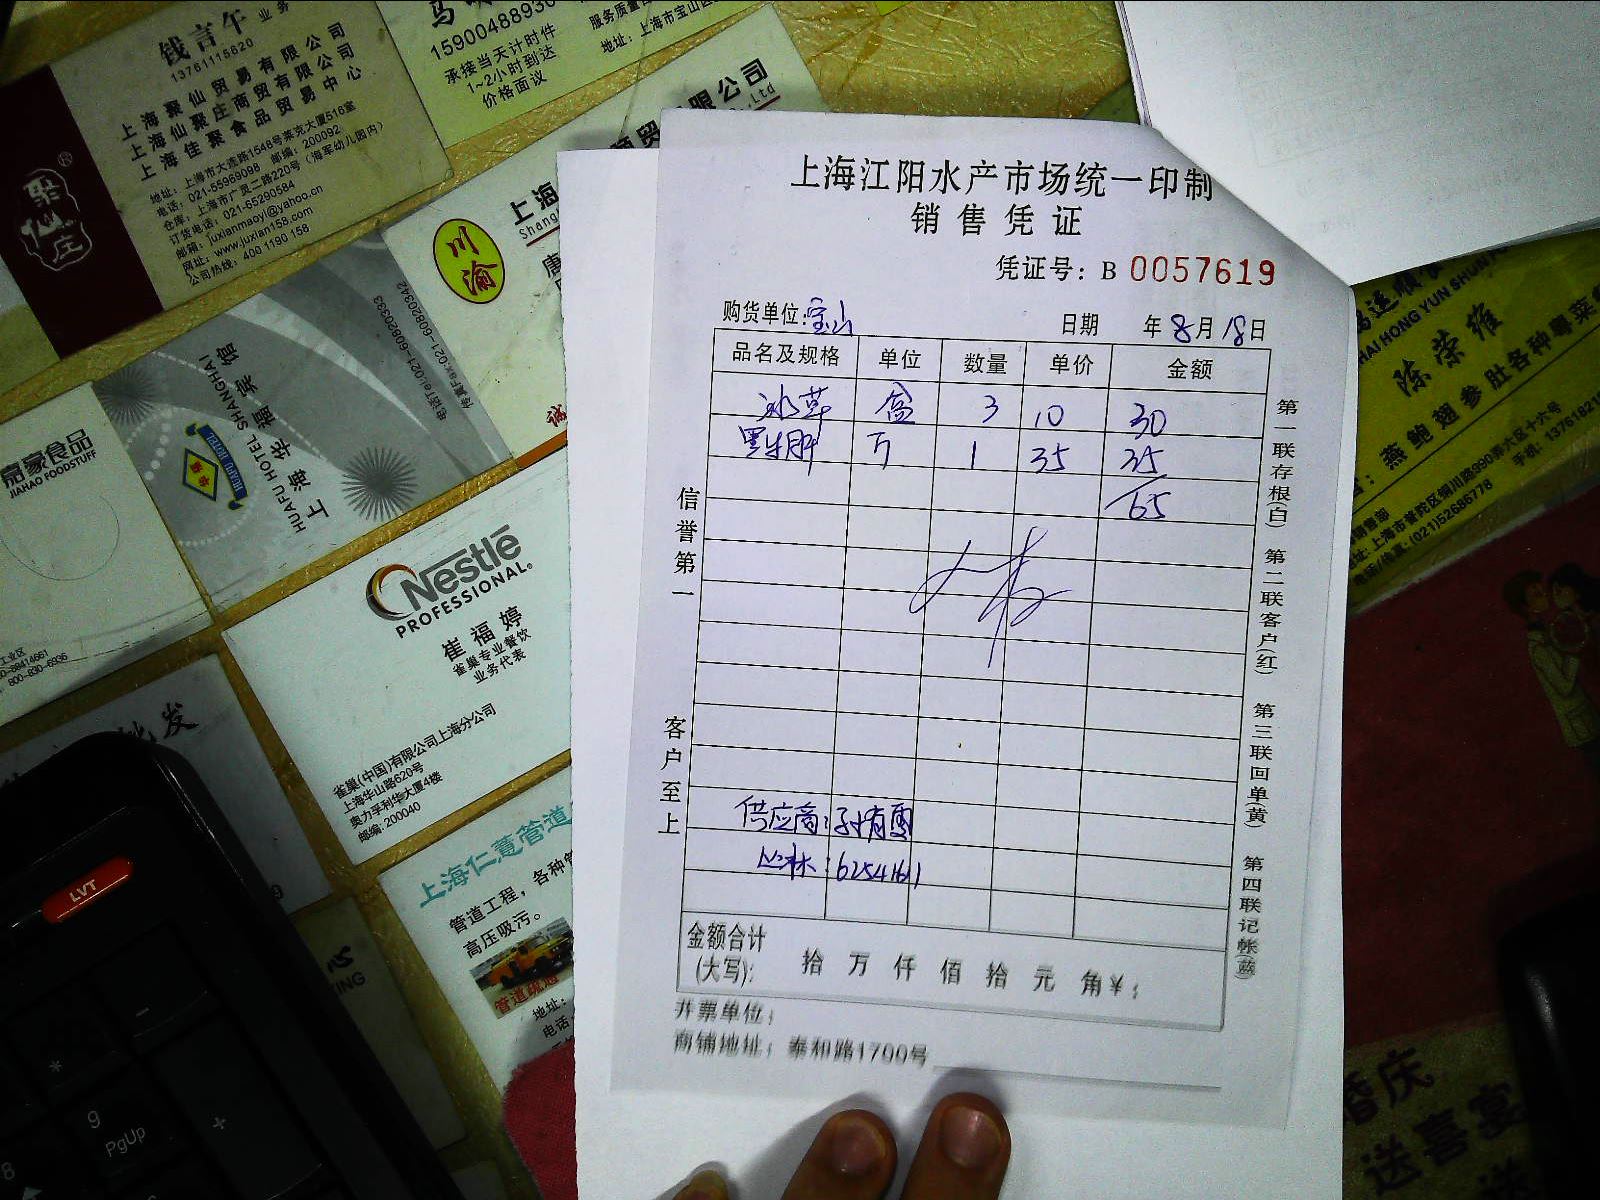 钱言午 业务
13761115620
上海聚仙贸易有限公司
上海仙聚庄商贸有限公司
上海佳聚食品贸易中心
地址：上海市大连路1548号莱克大厦516室
电话：021-55969098 邮编：200092
仓库：上海市广灵二路220号（海军幼儿园内）
订货电话：021-65290584
邮箱：juxianmaoyi@yahoo.cn
网址：www.juxian158.com
公司热线：400 1190 158
聚仙庄
®
1590048893
承接当天计时件
1~2小时到达
价格面议
服务质量
地址：上海市宝山区
限公司
Ltd
川渝
上海
Shang
唐
诚
上海华福宾馆
HUAFU HOTEL SHANGHAI
电话Tel:021-60820342
传真Fax:021-60820333
嘉豪食品
JIAHAO FOODSTUFF
Nestlé
PROFESSIONAL®
崔福婷
雀巢专业餐饮
业务代表
雀巢(中国)有限公司上海分公司
上海华山路620号
奥力孚利华大厦4楼
邮编：200040
批发
上海仁薏管道
管道工程，各种管
高压吸污。
管道疏通
地址：
电话：
LVT
9
PgUp
8
上海江阳水产市场统一印制
销售凭证
凭证号：B 0057619
购货单位：宝山
日期 年8月18日
品名及规格 单位 数量 单价 金额
冰草 盒 3 10 30
黑牛肝 斤 1 35 35
65
信誉第一
客户至上
第一联存根(白) 第二联客户(红) 第三联回单(黄) 第四联记帐(蓝)
供应商：孙精国
丛林：62541611
金额合计
(大写)： 拾 万 仟 佰 拾 元 角 ¥：
开票单位：
商铺地址：泰和路1700号
HAI HONG YUN SHUN
陈荣维
燕鲍翅参肚各种粤菜
销售部
地址：上海市普陀区铜川路990弄六区十六号
电话/传真：(021)52686778
手机：1376182
婚庆
送喜宴